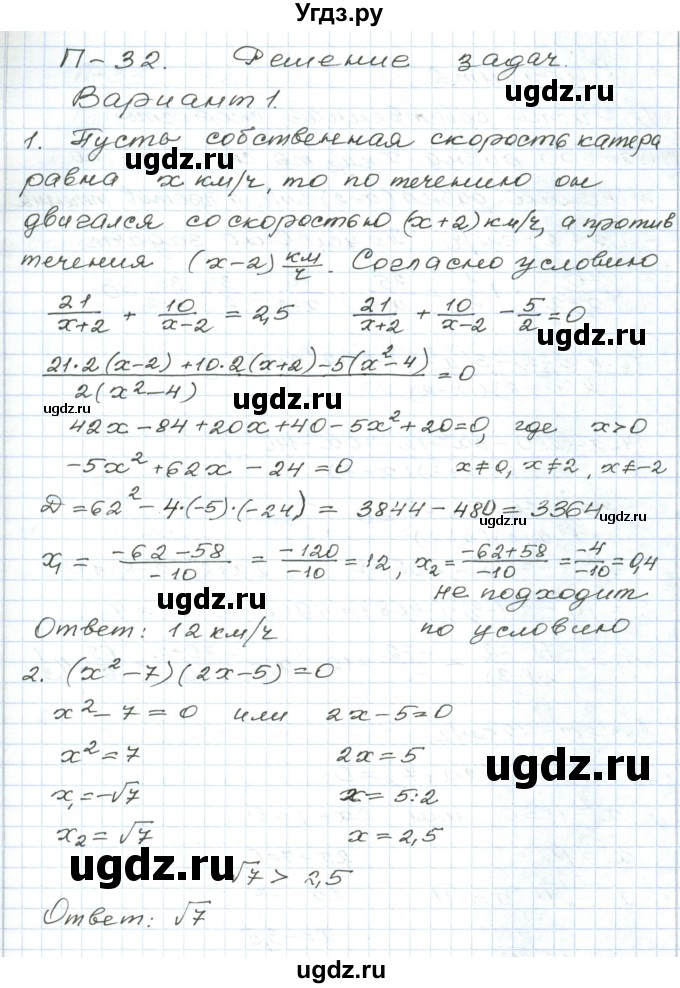 Угдз.ру
П-32. Решение задач.
Вариант 1.
1. Пусть собственная скорость катера
ugdz.ru
равна x км/ч, то по течению он
двигался со скоростью (x+2) км/ч, а против
течения (x-2) км/ч. Согласно условию
21/(x+2) + 10/(x-2) = 2,5   21/(x+2) + 10/(x-2) - 5/2 = 0
ugdz.ru
(21·2(x-2)+10·2(x+2)-5(x²-4))/(2(x²-4)) = 0
ugdz.ru ugdz.ru
42x-84+20x+40-5x²+20=0, где x>0
-5x²+62x-24=0   x≠0, x≠2, x≠-2
D=62²-4·(-5)·(-24) = 3844-480 = 3364
ugdz.ru ugdz.ru
x₁ = (-62-58)/(-10) = (-120)/(-10) = 12, x₂ = (-62+58)/(-10) = (-4)/(-10) = 0,4
ugdz.ru
не подходит
Ответ: 12 км/ч   по условию
2. (x²-7)(2x-5)=0
x²-7=0 или 2x-5=0
x²=7   2x=5
ugdz.ru
x₁=-√7   x=5:2
x₂=√7   x=2,5
ugdz.ru
√7 > 2,5
Ответ: √7
ugdz.ru
ugdz.ru